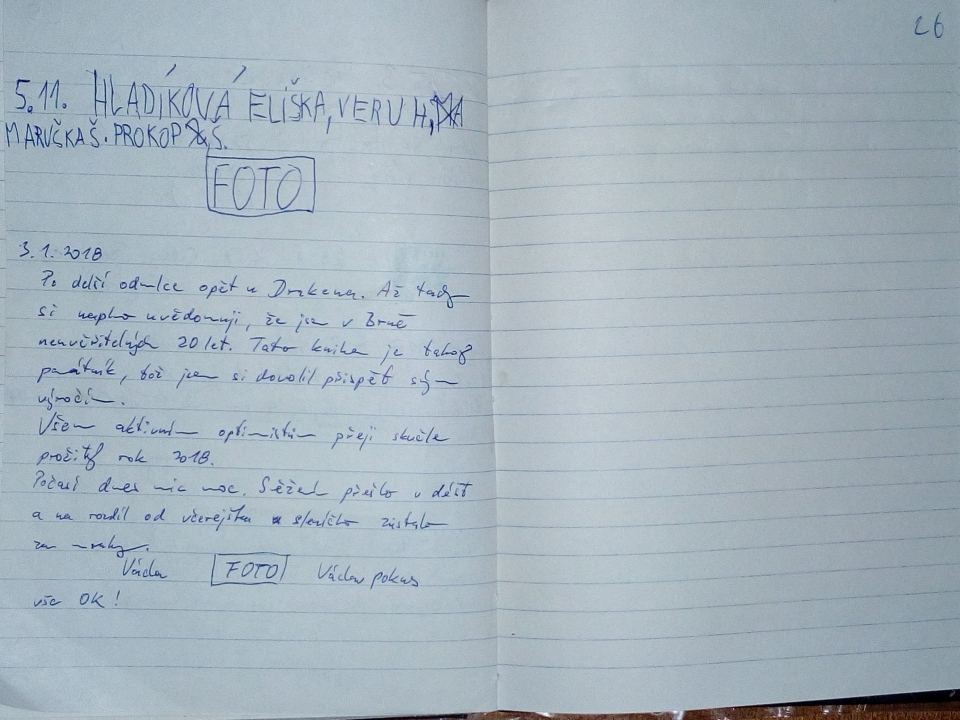 26
5.11. HLADÍKOVÁ ELIŠKA, VERU H,
MARUŠKA Š. PROKOP Š.
FOTO
3.1.2018
Po delší odmlce opět u Drakena. Až tady
si naplno uvědomuji, že jsem v Brně
neuvěřitelných 20 let. Tato kniha je takový
památník, tož jsem si dovolil přispět svým
výročím.
Všem aktivním optimistům přeji skvěle
prožitý rok 2018.
Počasí dnes nic moc. Sněžení přešlo v déšť
a na rozdíl od včerejška sluníčko zůstalo
za mraky.
Václav FOTO Václav pokus
vše OK!